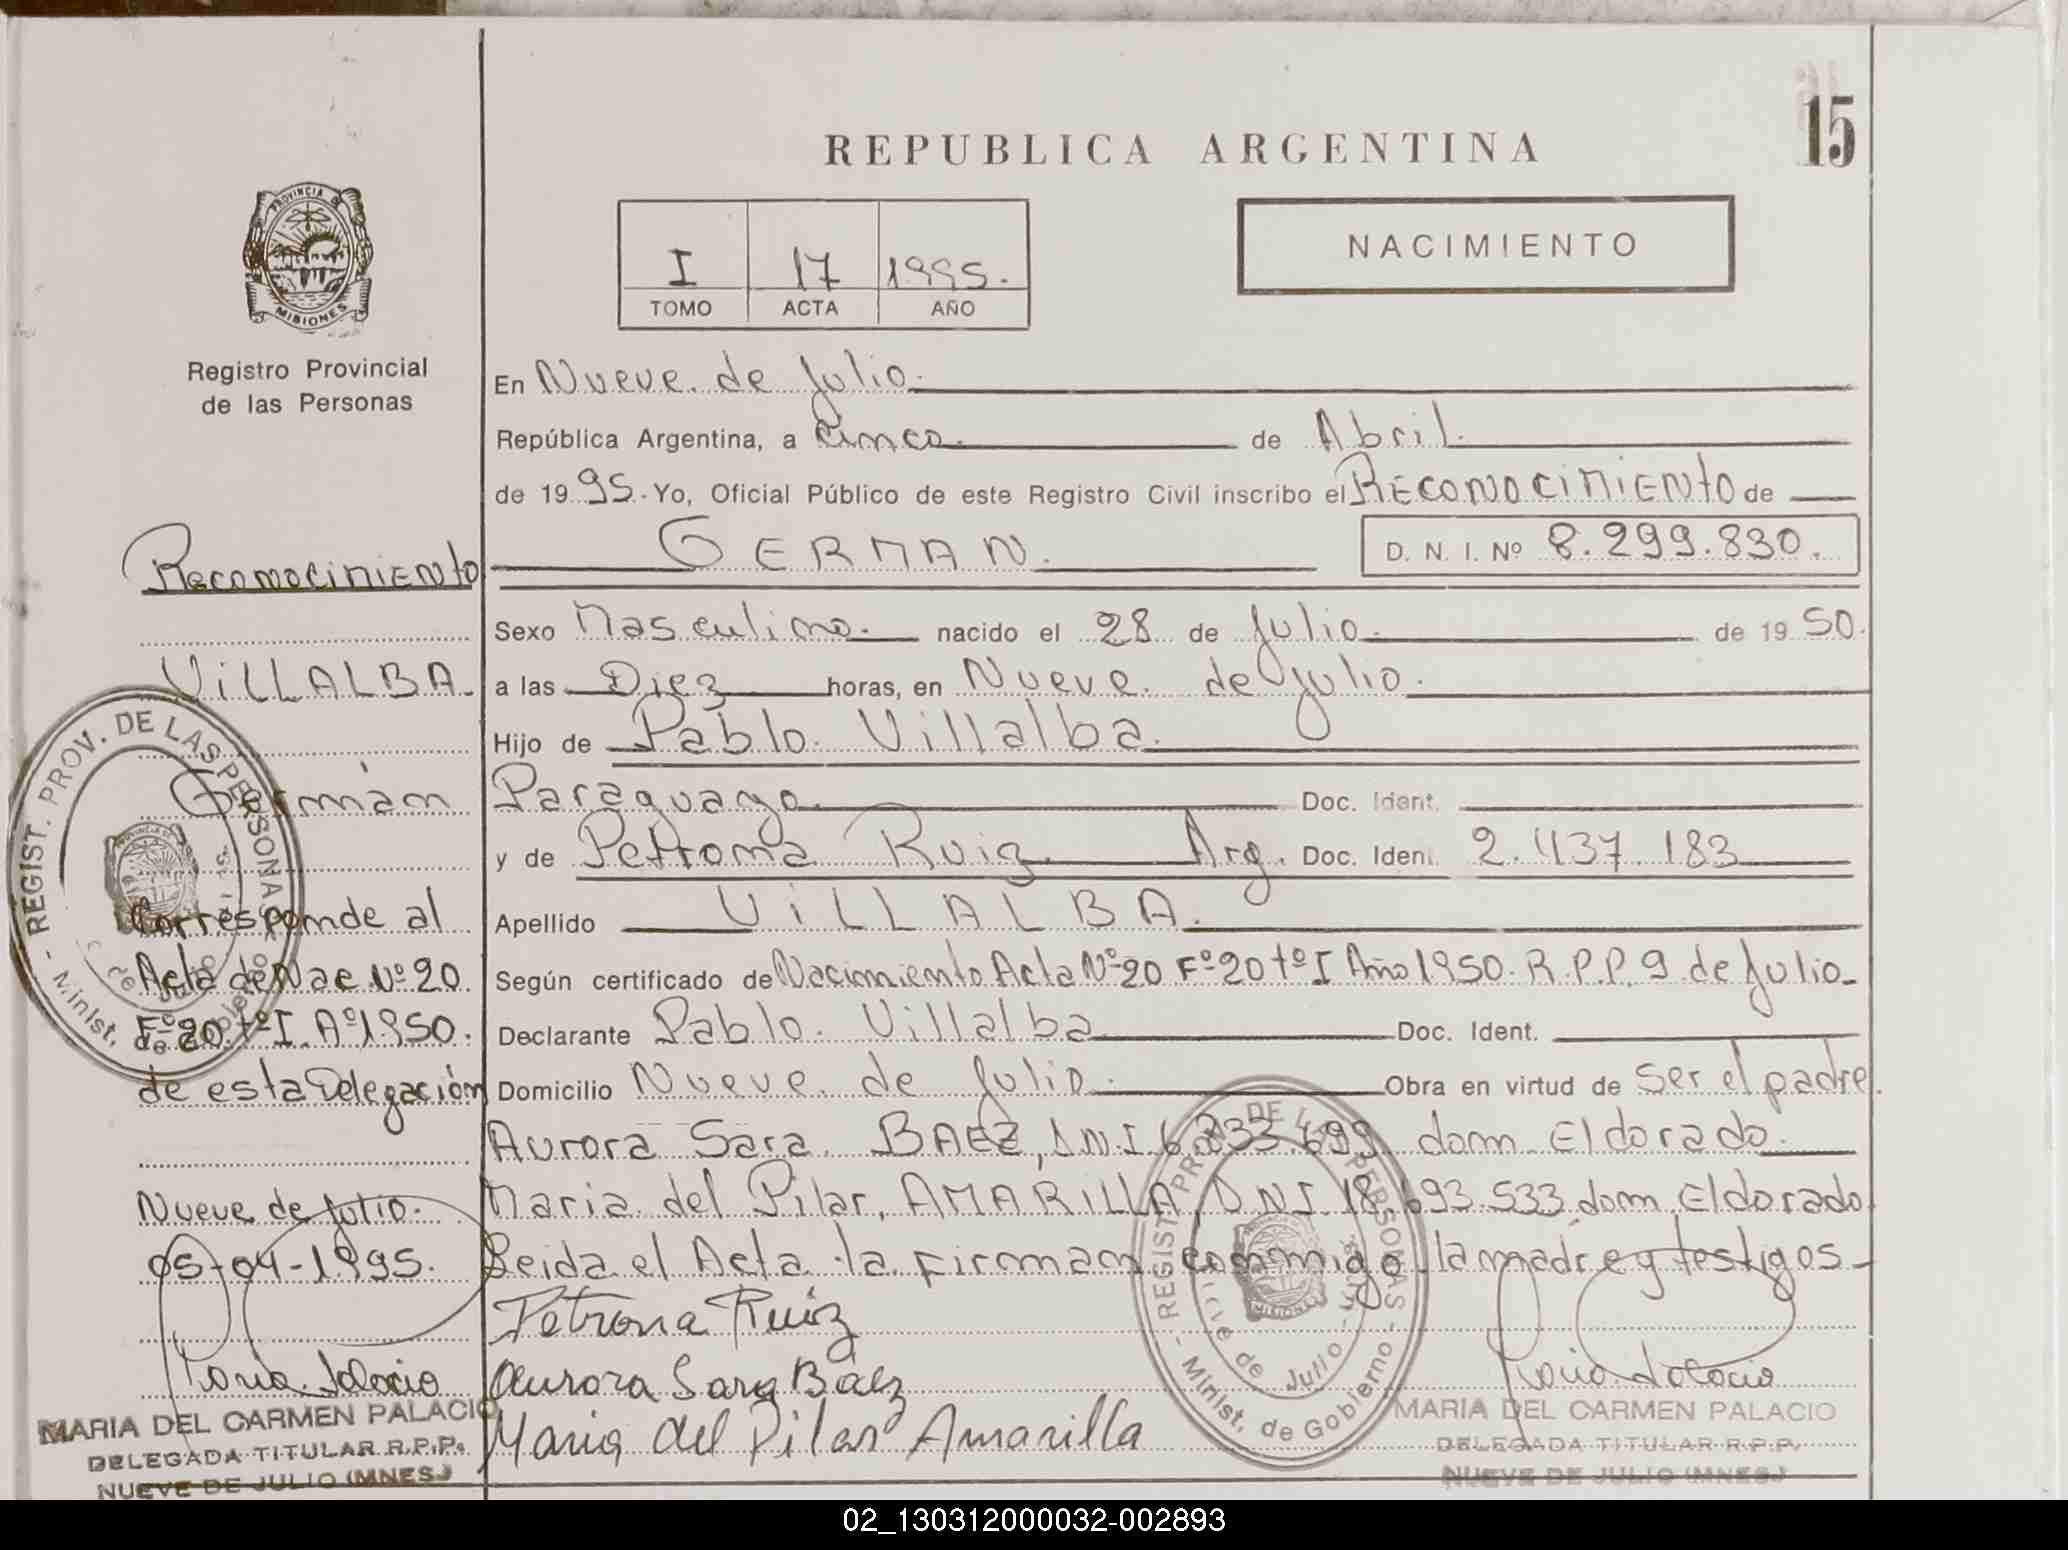 15
REPUBLICA ARGENTINA
NACIMIENTO
I 17 1995.
TOMO ACTA AÑO
PROVINCIA DE MISIONES
Registro Provincial
de las Personas
En Nueve de Julio.
República Argentina, a Cinco. de Abril.
de 1995. Yo, Oficial Público de este Registro Civil inscribo el RECONOCIMIENTO de
GERMAN. D. N. I. Nº 8.299.830.
Sexo Masculino. nacido el 28 de Julio. de 1950.
a las Diez horas, en Nueve de Julio.
Hijo de Pablo Villalba.
Paraguayo. Doc. Ident.
y de Petrona Ruiz. Arg. Doc. Iden. 2.437.183
Apellido VILLALBA.
Según certificado de Nacimiento Acta Nº 20 Fº 20 tº I Año 1950. R.P.P. 9 de Julio
Declarante Pablo Villalba Doc. Ident.
Domicilio Nueve de Julio. Obra en virtud de Ser el padre.
Aurora Sara BAEZ, D.N.I 6.833.699 dom. Eldorado.
Maria del Pilar, AMARILLA, D.N.I. 18.693.533 dom. Eldorado
Leida el Acta la Firman conmigo la madre y testigos.
Petrona Ruiz
Aurora Sara Báez
Maria del Pilar Amarilla
MARIA DEL CARMEN PALACIO
DELEGADA TITULAR R.P.P.
NUEVE DE JULIO (MNES.)
Reconocimiento
VILLALBA
Germán
Corresponde al
Acta de Nac Nº 20
Fº 20 tº I. Aº 1950.
de esta Delegación
Nueve de Julio.
05-04-1995.
MARIA DEL CARMEN PALACIO
DELEGADA TITULAR R.P.P.
NUEVE DE JULIO (MNES.)
REGIST. PROV. DE LAS PERSONAS
Minist. de Gobierno
REGIST. PROV. DE LAS PERSONAS
Nueve de Julio
Minist. de Gobierno
02_130312000032-002893